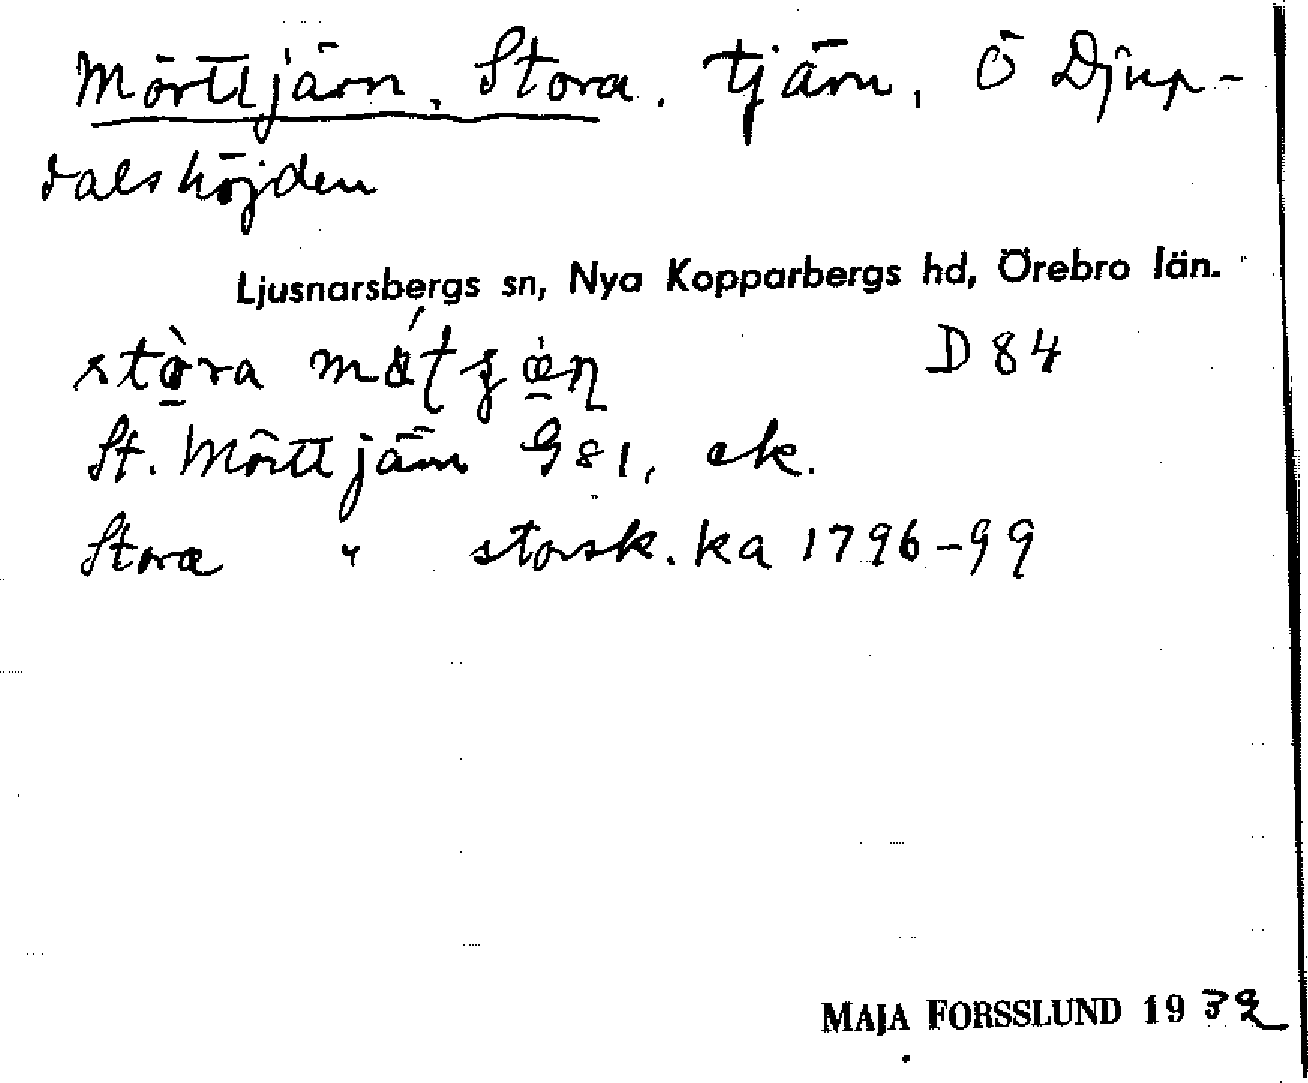 Mörttjärn, Stora. tjärn, Ö Djup-
dalshöjden
Ljusnarsbergs sn, Nya Kopparbergs hd, Örebro län.
stòra D 84
St. Mörttjärn G81, ek.
Stora " storsk. ka 1796-99
MAJA FORSSLUND 1939